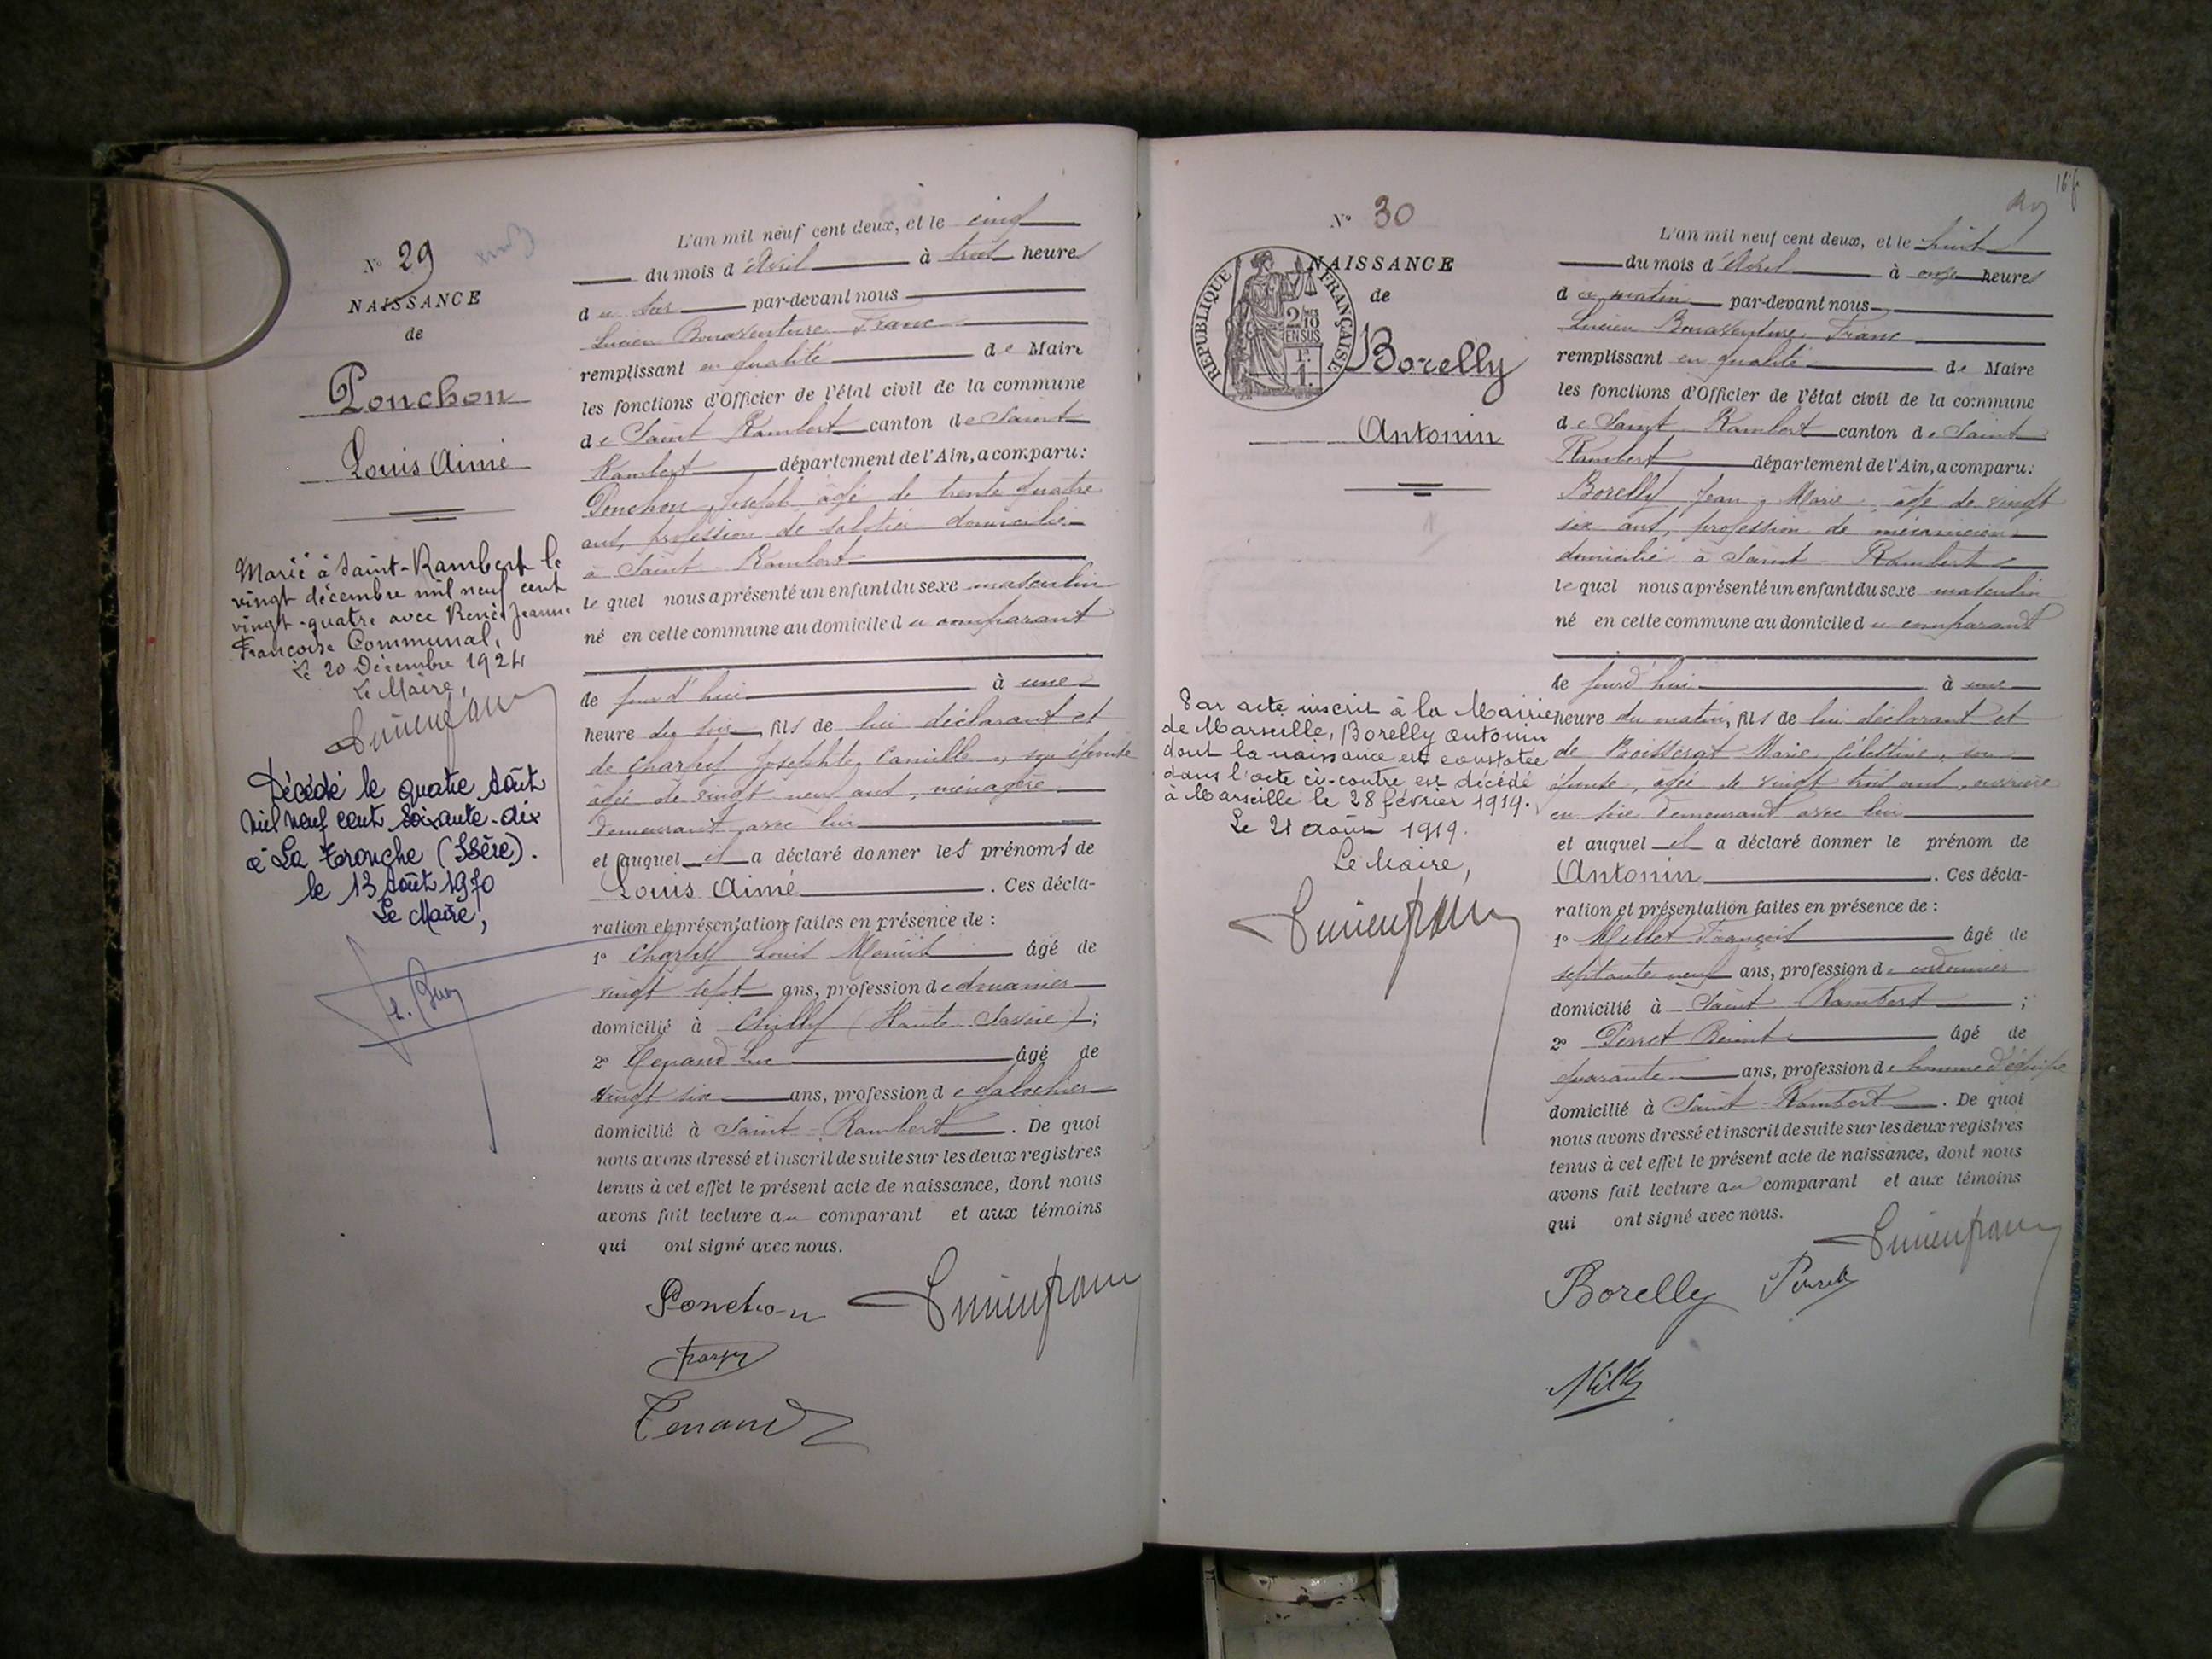 N° 29
NAISSANCE
de
Ponchon
Louis Aimé
Marié à Saint-Rambert le
vingt décembre mil neuf cent
vingt-quatre avec Renée Jeanne
Françoise Communal.
Le 20 Décembre 1924
Le Maire,
Décédé le quatre Août
mil neuf cent soixante-dix
à La Tronche (Isère).
le 13 Août 1970
Le Maire,
L'an mil neuf cent deux, et le cinq
du mois d'Avril à trois heures
du soir par-devant nous
Lucien Bonaventure Franc
remplissant en qualité de Maire
les fonctions d'Officier de l'état civil de la commune
de Saint Rambert canton de Saint
Rambert département de l'Ain, a comparu:
Ponchon Joseph âgé de trente quatre
ans, profession de domicilié
à Saint Rambert
lequel nous a présenté un enfant du sexe masculin
né en cette commune au domicile du comparant
le jourd'hui à une
heure du soir, fils de lui déclarant et
de Charley Josephte Camille, son épouse
âgée de vingt neuf ans, ménagère
demeurant avec lui
et auquel il a déclaré donner les prénoms de
Louis Aimé. Ces décla-
ration et présentation faites en présence de :
1° Charley Louis âgé de
vingt sept ans, profession de douanier
domicilié à Chilly (Haute Savoie);
2° Tenand Luc âgé de
vingt six ans, profession de galochier
domicilié à Saint-Rambert. De quoi
nous avons dressé et inscrit de suite sur les deux registres
tenus à cet effet le présent acte de naissance, dont nous
avons fait lecture au comparant et aux témoins
qui ont signé avec nous.
Ponchon Lucien franc
Charley
Tenand
N° 30
NAISSANCE
de
REPUBLIQUE FRANÇAISE
2/10 EN SUS
1 F.
Borelly
Antonin
Par acte inscrit à la Mairie
de Marseille, Borelly Antonin
dont la naissance est constatée
dans l'acte ci-contre est décédé
à Marseille le 28 février 1919.
Le 21 août 1919.
Le Maire,
Lucien franc
L'an mil neuf cent deux, et le huit
du mois d'Avril à onze heures
du matin par-devant nous
Lucien Bonaventure Franc
remplissant en qualité de Maire
les fonctions d'Officier de l'état civil de la commune
de Saint Rambert canton de Saint
Rambert département de l'Ain, a comparu:
Borelly Jean-Marie âgé de vingt
six ans, profession de mécanicien
domicilié à Saint-Rambert
lequel nous a présenté un enfant du sexe masculin
né en cette commune au domicile du comparant
le jourd'hui à une
heure du matin, fils de lui déclarant et
de Boisserat Marie Célestine, son
épouse, âgée de vingt trois ans, ouvrière
en soie demeurant avec lui
et auquel il a déclaré donner le prénom de
Antonin. Ces décla-
ration et présentation faites en présence de :
1° Millet François âgé de
septante neuf ans, profession de cordonnier
domicilié à Saint Rambert ;
2° Perret Benoit âgé de
quarante ans, profession de homme d'équipe
domicilié à Saint-Rambert. De quoi
nous avons dressé et inscrit de suite sur les deux registres
tenus à cet effet le présent acte de naissance, dont nous
avons fait lecture au comparant et aux témoins
qui ont signé avec nous.
Lucien franc
Borelly Perret
Millet